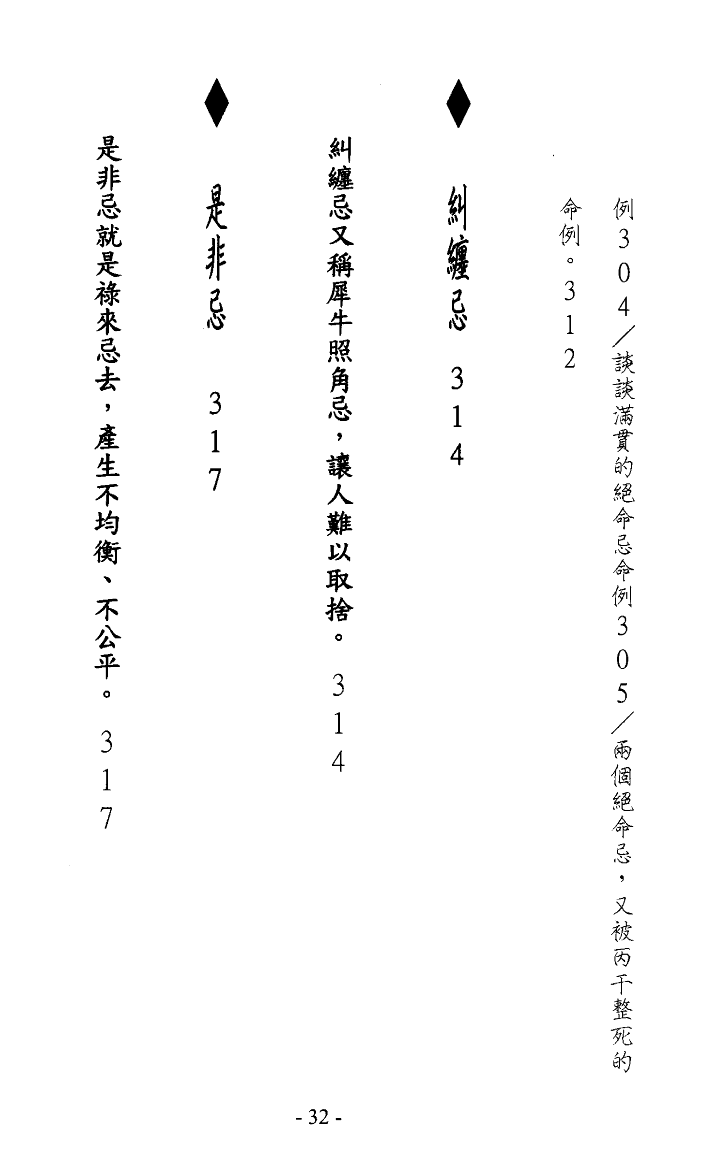 例304／談談滿貫的絕命忌命例305／兩個絕命忌，又被丙干整死的
命例。312
◆ 糾纏忌 314
糾纏忌又稱犀牛照角忌，讓人難以取捨。314
◆ 是非忌 317
是非忌就是祿來忌去，產生不均衡、不公平。317
- 32 -